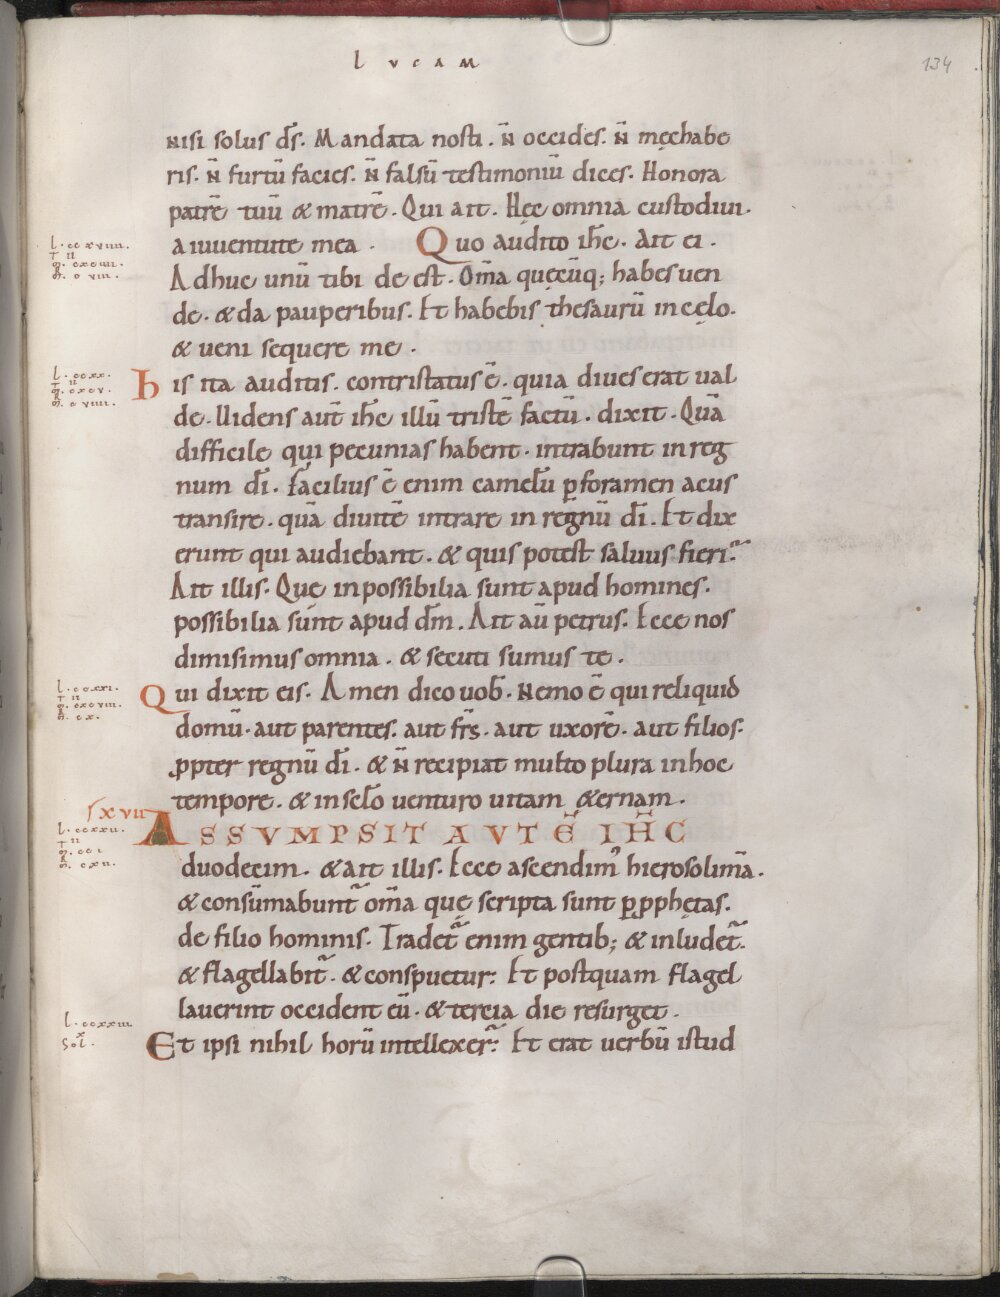 LVCAM
134
nisi solus d̄s. Mandata nosti. n̄ occides. n̄ męchabe
ris. n̄ furtū facies. n̄ falsū testimoniū dices. Honora
patrē tuū & matrē. Qui ait. Hęc omnia custodiui.
a iuuentute mea. Quo audito ih̄c. Ait ei.
l. ccxviiii.
Adhuc unū tibi deest. Om̄a quęcūq; habes uen
de. & da pauperibus. Et habebis thesaurū in cęlo.
& ueni sequere me.
l. ccxx.
His ita auditis. contristatus ē. quia diues erat ual
de. Uidens aut̄ ih̄c illū tristē factū. dixit. Quā
difficile qui pecunias habent. intrabunt in reg
num dī. facilius ē enim camelū ꝑ foramen acus
transire. quā diuitē intrare in regnū dī. Et dix
erunt qui audiebant. & quis potest saluus fieri?
Ait illis. Quę inpossibilia sunt apud homines.
possibilia sunt apud dm̄. Ait aū petrus. Ecce nos
dimisimus omnia. & secuti sumus te.
l. ccxxi.
Qui dixit eis. Amen dico uob̄. Nemo ē qui reliquid
domū. aut parentes. aut fr̄s. aut uxorē. aut filios.
ꝓpter regnū dī. & n̄ recipiat multo plura in hoc
tempore. & in sclo uenturo uitam &ernam.
l. ccxxii.
ASSVMPSIT AVTĒ IH̄C
duodecim. & ait illis. Ecce ascendimꝰ hierosolimā.
& consūmabunt᷑ om̄a quę scripta sunt ꝑ ꝓphętas.
de filio hominis. Tradet᷑ enim gentib; & inludet᷑.
& flagellabit᷑. & conspuetur. Et postquam flagel
lauerint occident eū. & tercia die resurget.
l. ccxxiii.
Sol. x
Et ipsi nihil horū intellexer᷑. Et erat uerbū istud